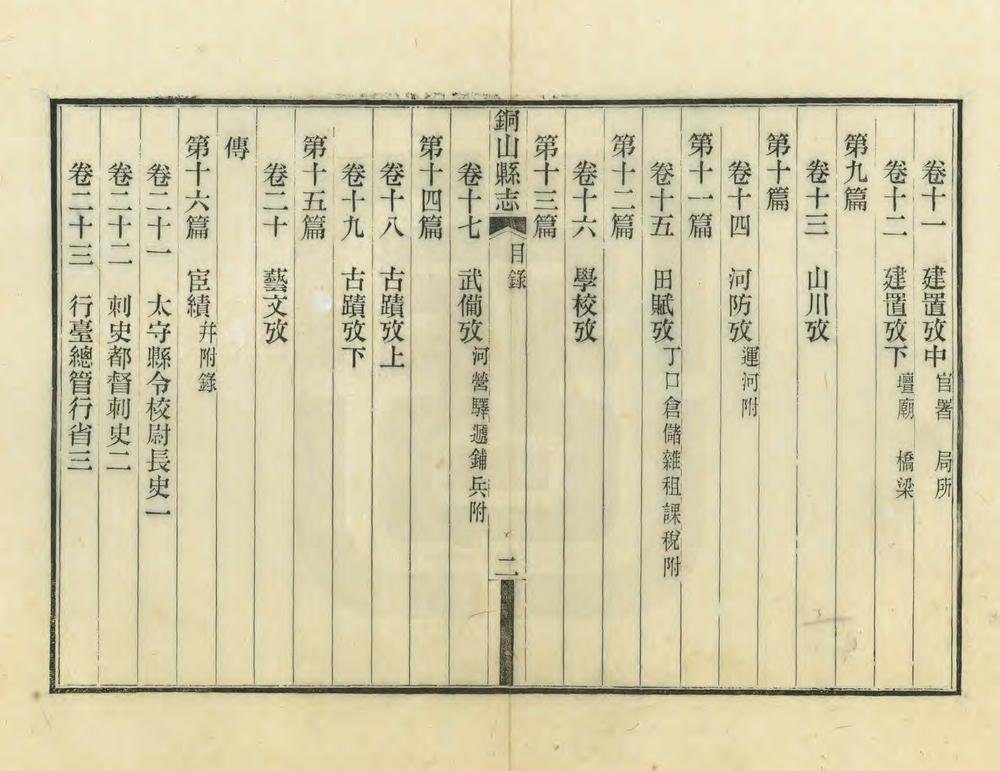 卷十一　建置攷中　官署　局所
卷十二　建置攷下　壇廟　橋梁
第九篇
卷十三　山川攷
第十篇
卷十四　河防攷　運河附
第十一篇
卷十五　田賦攷　丁口倉儲雜租課稅附
第十二篇
卷十六　學校攷
第十三篇
銅山縣志　目錄　二
卷十七　武備攷　河營驛遞鋪兵附
第十四篇
卷十八　古蹟攷上
卷十九　古蹟攷下
第十五篇
卷二十　藝文攷
傳
第十六篇　宦績　幷附錄
卷二十一　太守縣令校尉長史一
卷二十二　刺史都督刺史二
卷二十三　行臺總管行省三